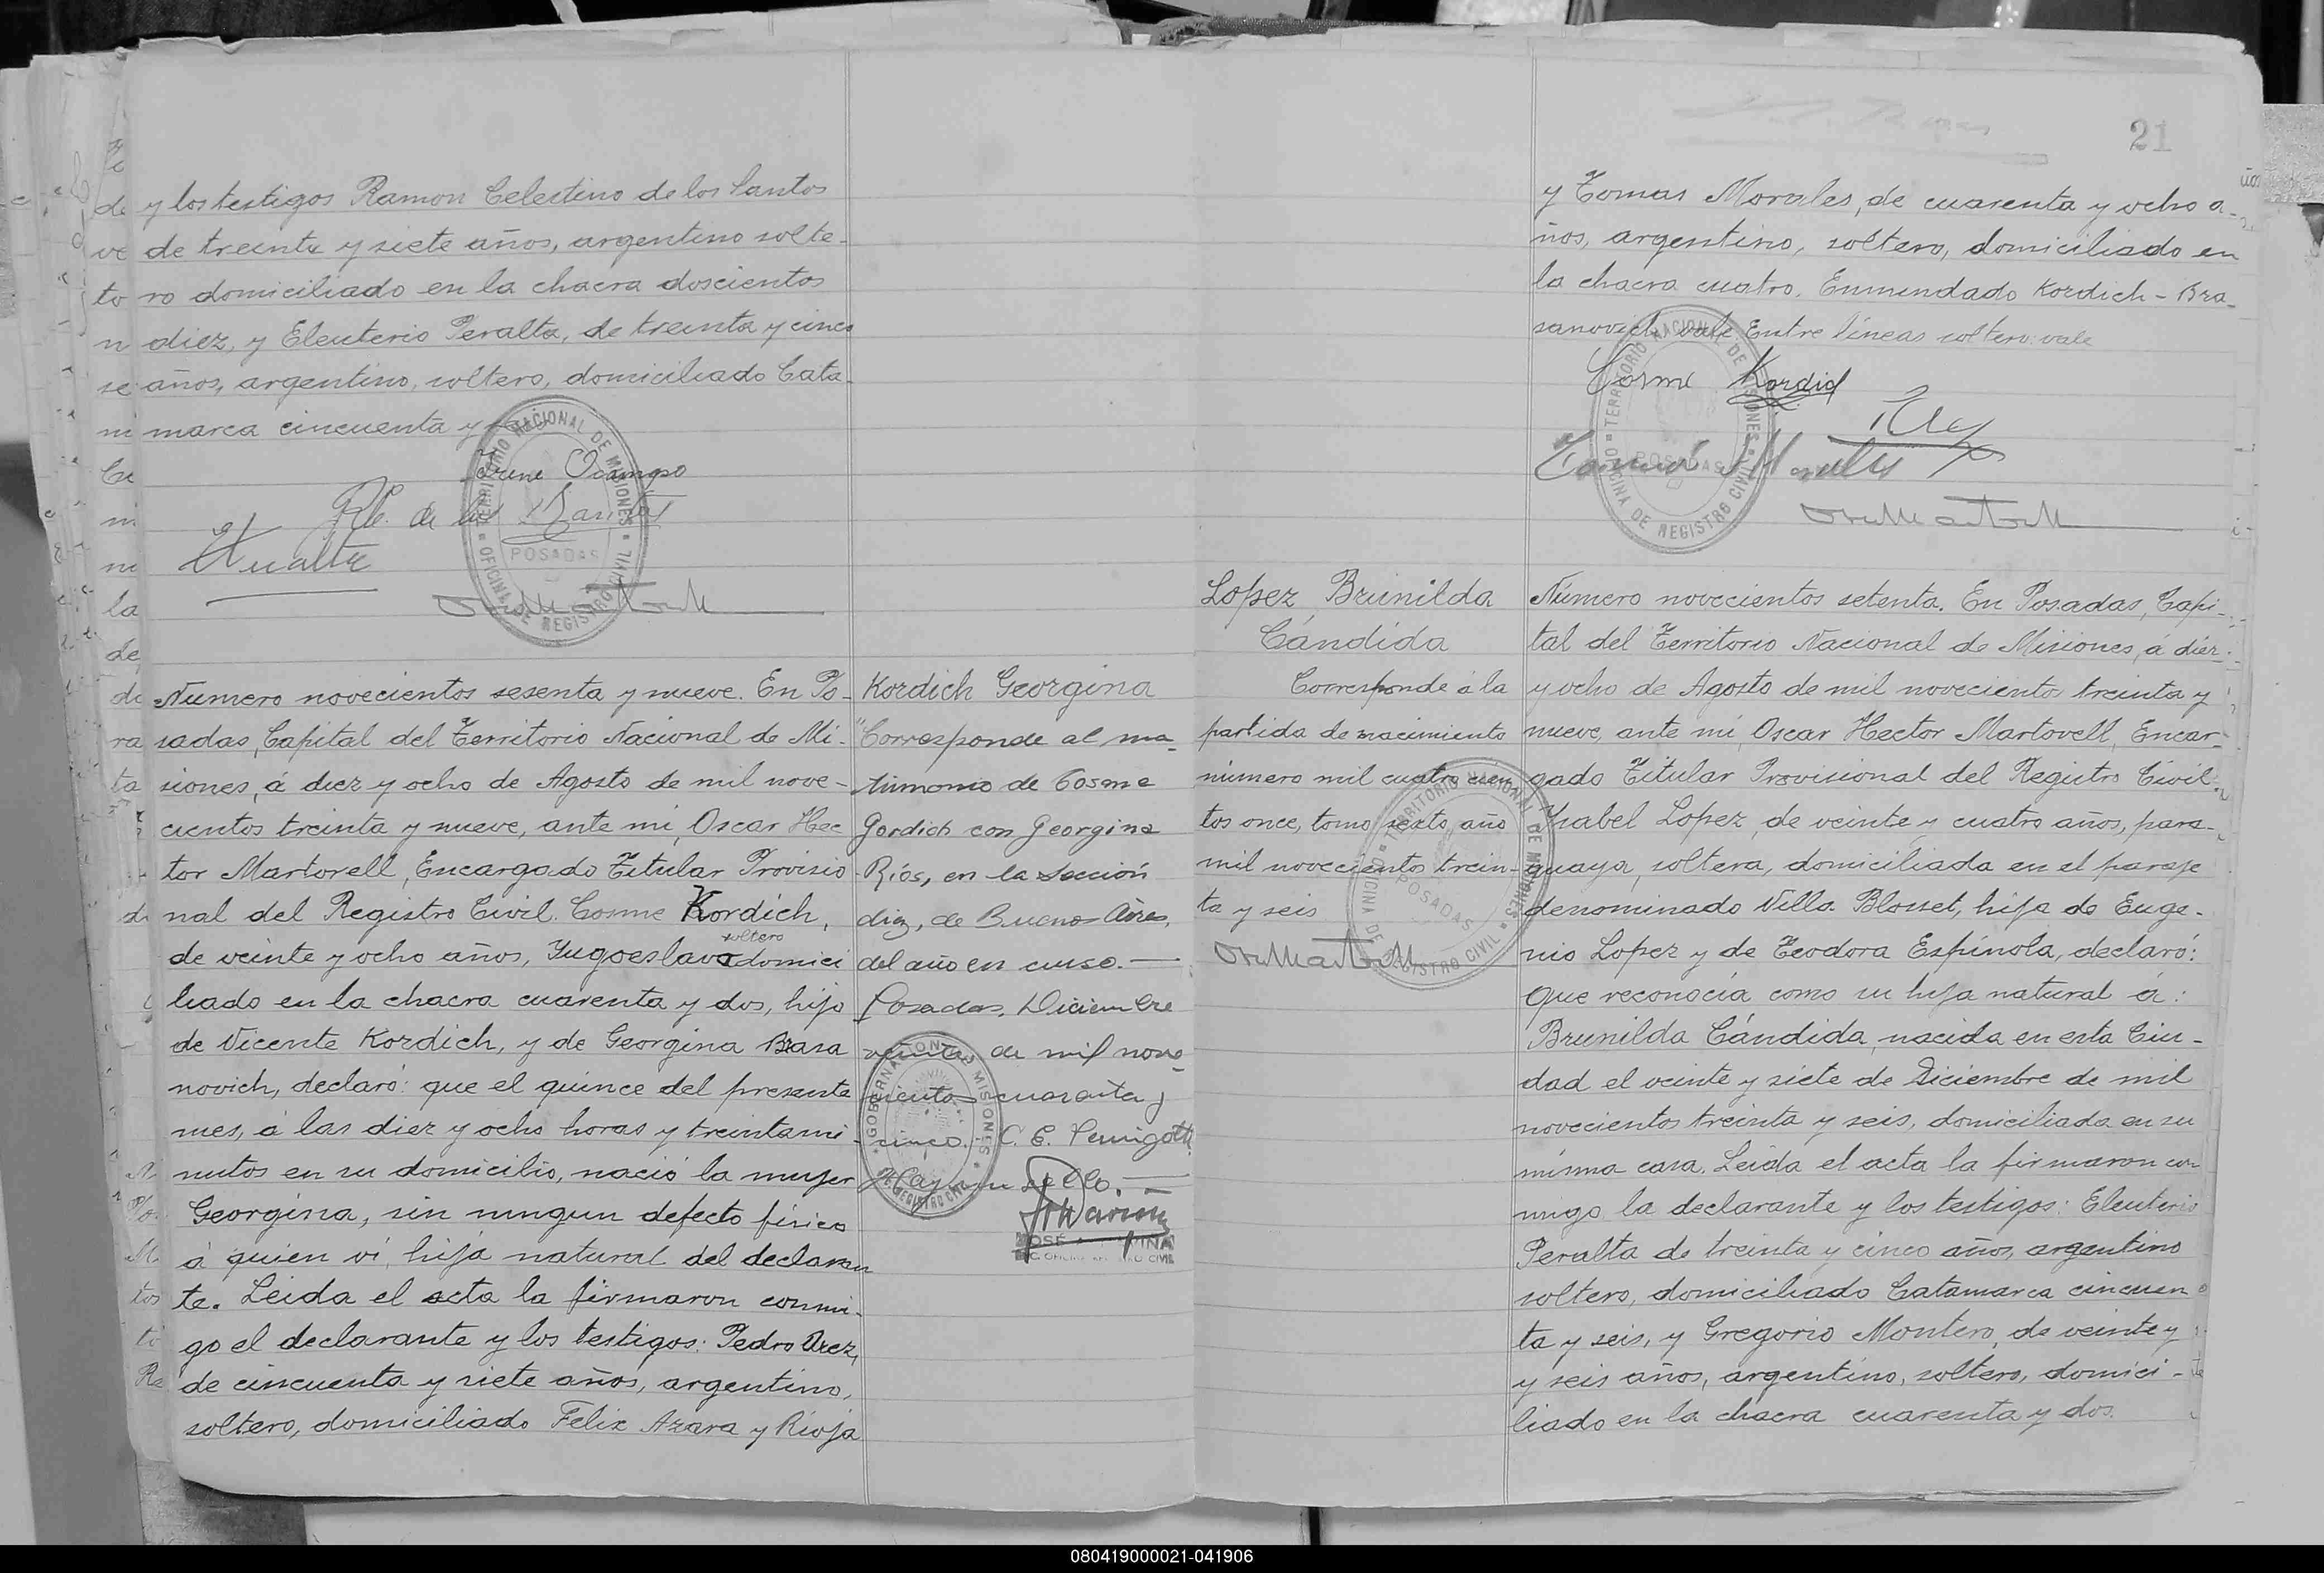 y los testigos Ramon Celestino de los Santos
de treinta y siete años, argentino solte-
ro domiciliado en la chacra doscientos
diez, y Eleuterio Peralta, de treinta y cinco
años, argentino, soltero, domiciliado Cata-
marca cincuenta y
Irene Ocampo
R.C. de los Santos
TERRITORIO NACIONAL DE MISIONES
POSADAS
OFICINA DE REGISTRO CIVIL
Numero novecientos sesenta y nueve. En Po-
sadas, Capital del Territorio Nacional de Mi-
siones, á diez y ocho de Agosto de mil nove-
cientos treinta y nueve, ante mi, Oscar Hec
tor Martorell, Encargado Titular Provisio
nal del Registro Civil. Cosme Kordich,
soltero
de veinte y ocho años, Yugoeslavo domici
liado en la chacra cuarenta y dos, hijo
de Vicente Kordich, y de Georgina Brasa
novich, declaró: que el quince del presente
mes, á las diez y ocho horas y treinta mi-
nutos en su domicilio, nació la mujer
Georgina, sin ningun defecto físico
á quien ví, hija natural del declaran
te. Leida el acta la firmaron conmi-
go el declarante y los testigos: Pedro
de cincuenta y siete años, argentino,
soltero, domiciliado Felix Azara y Rioja
Kordich Georgina
"Corresponde al ma-
trimonio de Cosme
Gordich con Georgina
Ríos, en la sección
diez, de Buenos Aires,
del año en curso.—
Posadas, Diciembre
veinte de mil nove-
cientos cuarenta y
cinco.- C. E.
Hay un sello.—
GOBERNACION MISIONES
REGISTRO CIVIL
JOSÉ
21
y Tomas Morales, de cuarenta y ocho a-
ños, argentino, soltero, domiciliado en
la chacra cuatro. Enmendado Kordich - Bra-
sanovich vale Entre líneas soltero: vale
Cosme Kordich
TERRITORIO NACIONAL DE MISIONES
POSADAS
OFICINA DE REGISTRO CIVIL
Lopez Brunilda
Cándida
Corresponde á la
partida de nacimiento
número mil cuatro cien
tos once, tomo sexto, año
mil novecientos trein-
ta y seis
TERRITORIO NACIONAL DE MISIONES
POSADAS
OFICINA DE REGISTRO CIVIL
Número novecientos setenta. En Posadas, Capi-
tal del Territorio Nacional de Misiones, á diez
y ocho de Agosto de mil novecientos treinta y
nueve, ante mi, Oscar Hector Martorell, Encar-
gado Titular Provisional del Registro Civil.
Ysabel Lopez, de veinte y cuatro años, para-
guaya, soltera, domiciliada en el paraje
denominado Villa Blosset, hija de Euge-
nio Lopez y de Teodora Espínola, declaró:
Que reconocía como su hija natural á:
Brunilda Cándida, nacida en esta Ciu-
dad el veinte y siete de Diciembre de mil
novecientos treinta y seis, domiciliada en su
misma casa. Leida el acta la firmaron con
migo la declarante y los testigos: Eleuterio
Peralta de treinta y cinco años, argentino
soltero, domiciliado Catamarca cincuen
ta y seis, y Gregorio Montero, de veinte y
y seis años, argentino, soltero, domici-
liado en la chacra cuarenta y dos.
080419000021-041906